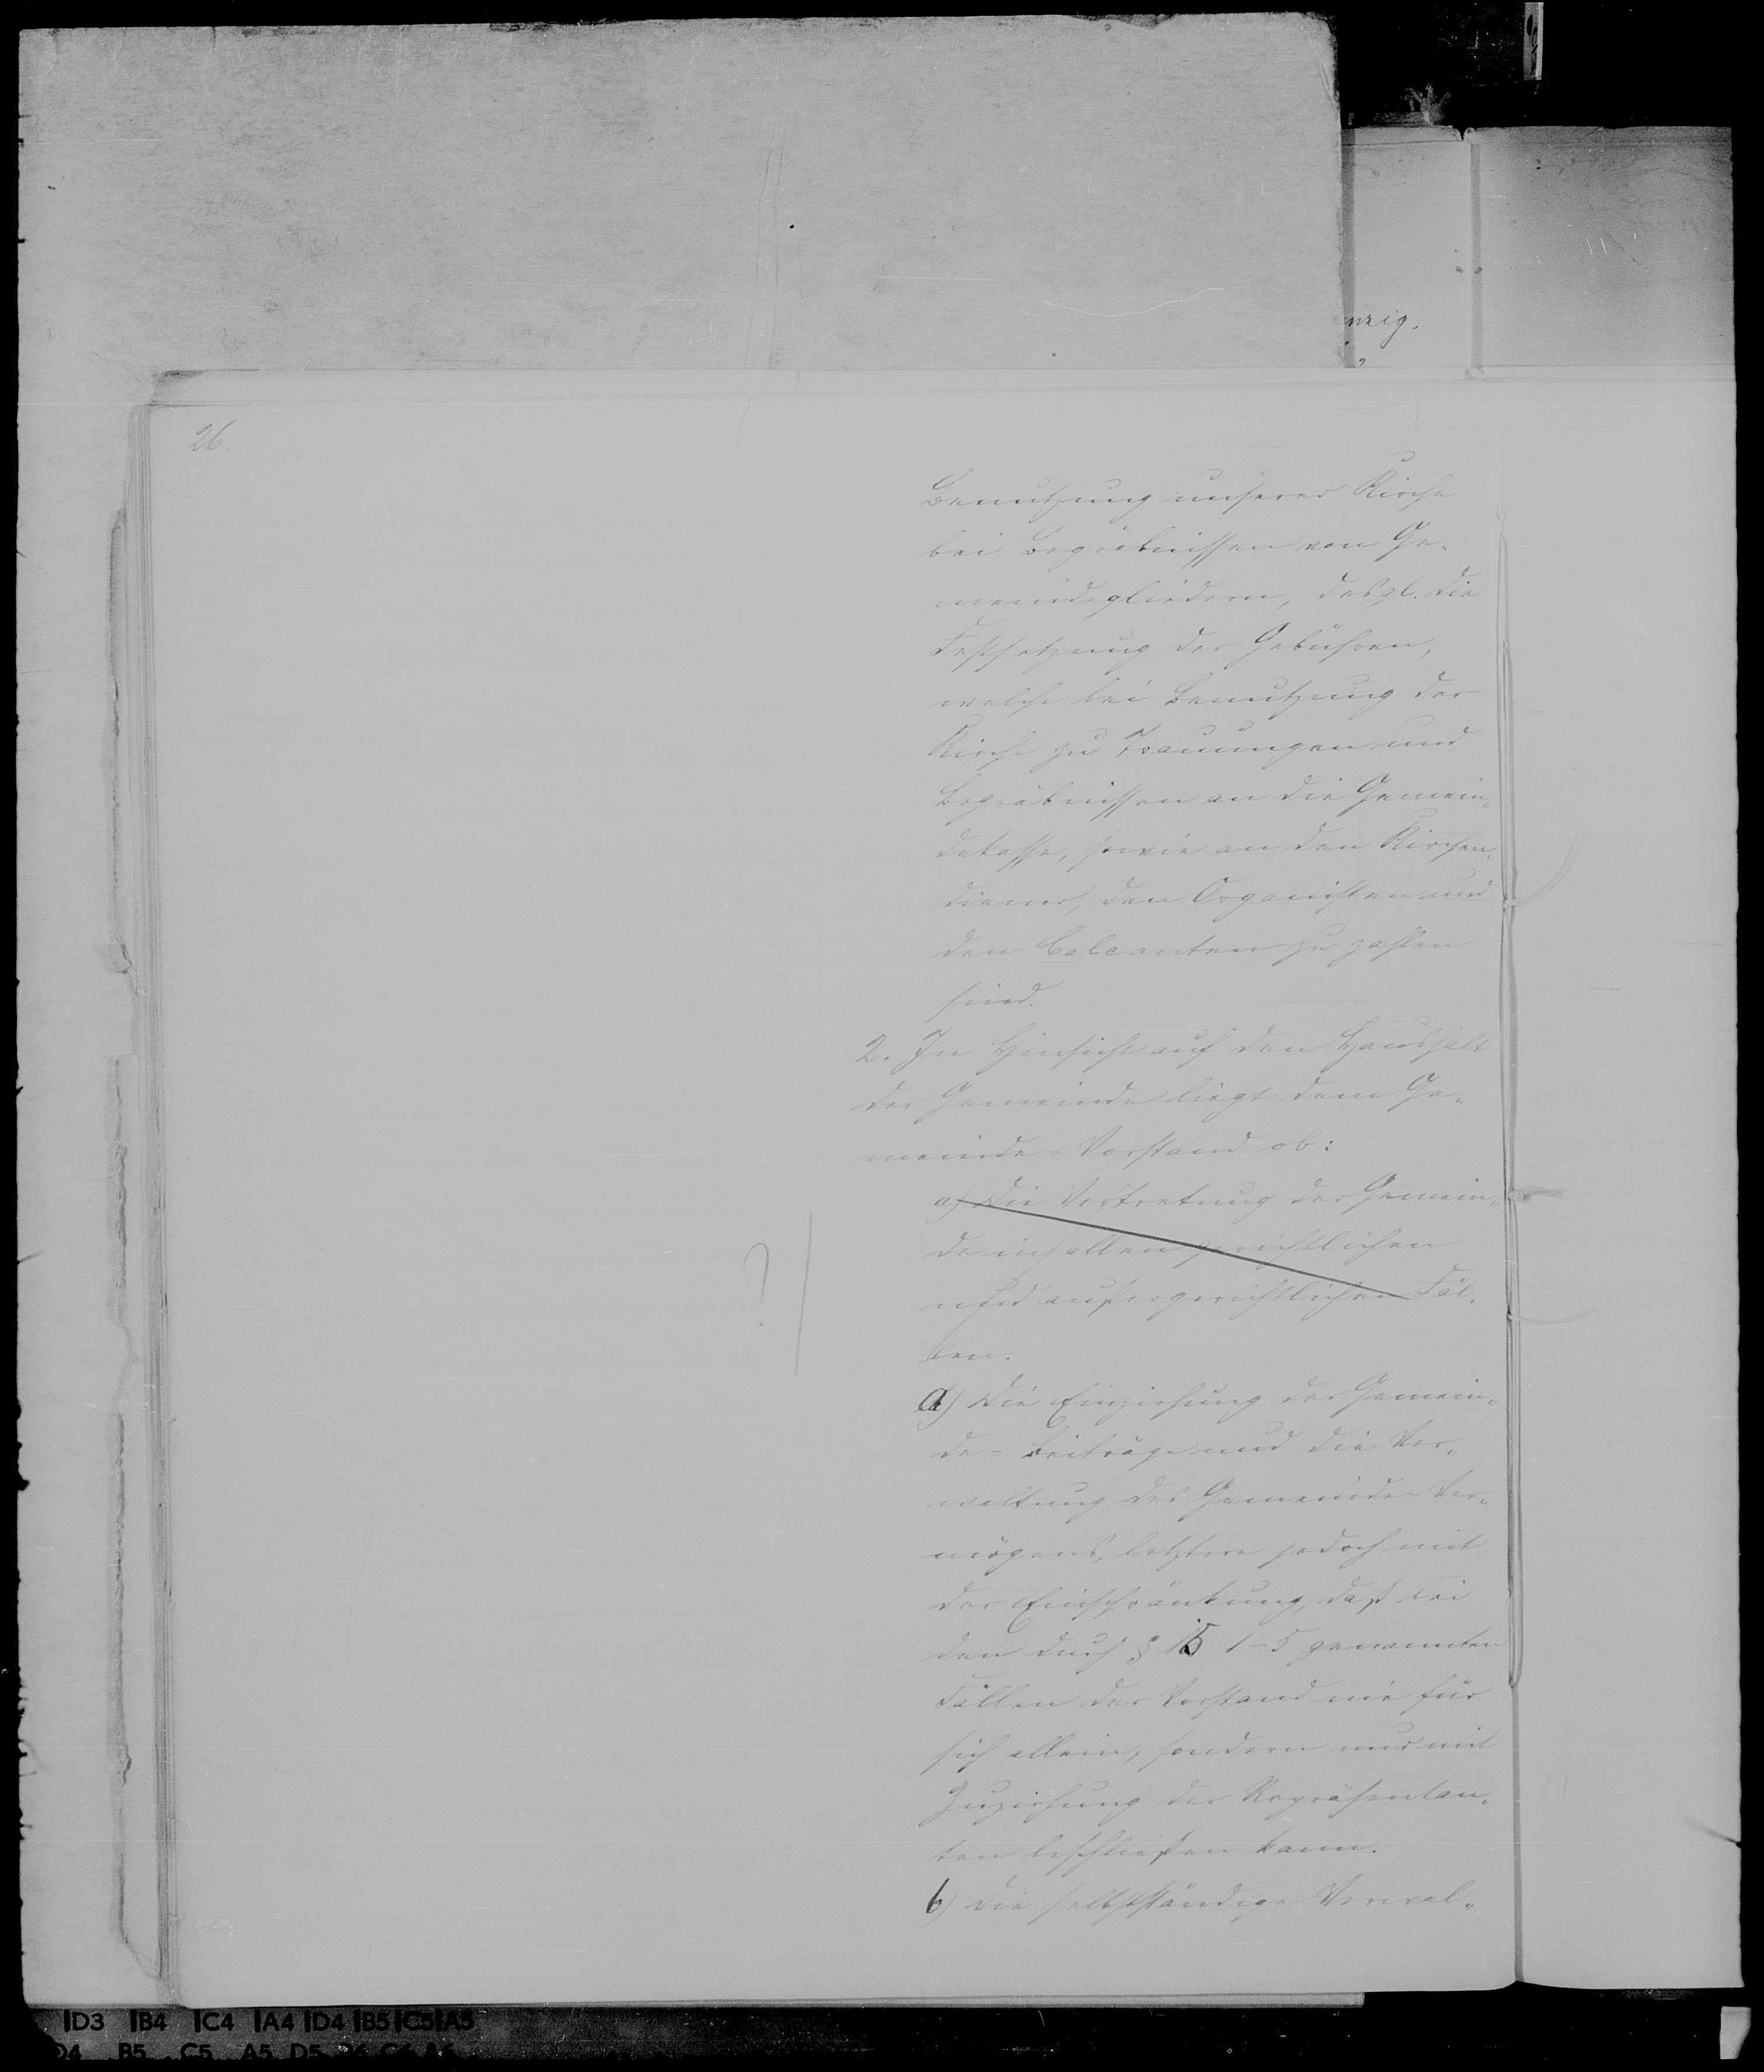 nzig.
26.
Benutzung unserer Kirche
bei Begräbnissen von Ge-
meindegliedern, desgl. die
Festsetzung der Gebühren,
welche bei Benutzung der
Kirche zu Trauungen und
Begräbnissen an die Gemein-
dekasse, sowie an den Kirchen-
diener, den Organisten und
den Calcanten zu zahlen
sind.
2. In Hinsicht auf den Haushalt
der Gemeinde liegt dem Ge-
meinde-Vorstand ob:
a) die Vertretung der Gemein-
de in allen gerichtlichen
und außergerichtlichen Fäl-
len.
?
a) die Einziehung der Gemein-
de-Beiträge und die Ver-
waltung des Gemeinde-Ver-
mögens, letztere jedoch mit
der Einschränkung, daß bei
den durch § 15 1-5 genannten
Fällen der Vorstand nie für
sich allein, sondern nur mit
Zuziehung der Repräsentan-
ten beschließen kann.
b) die selbstständige Verwal-
D3 B4 C4 A4 D4 B5 C5 A5
D4 B5 C5 A5 D5